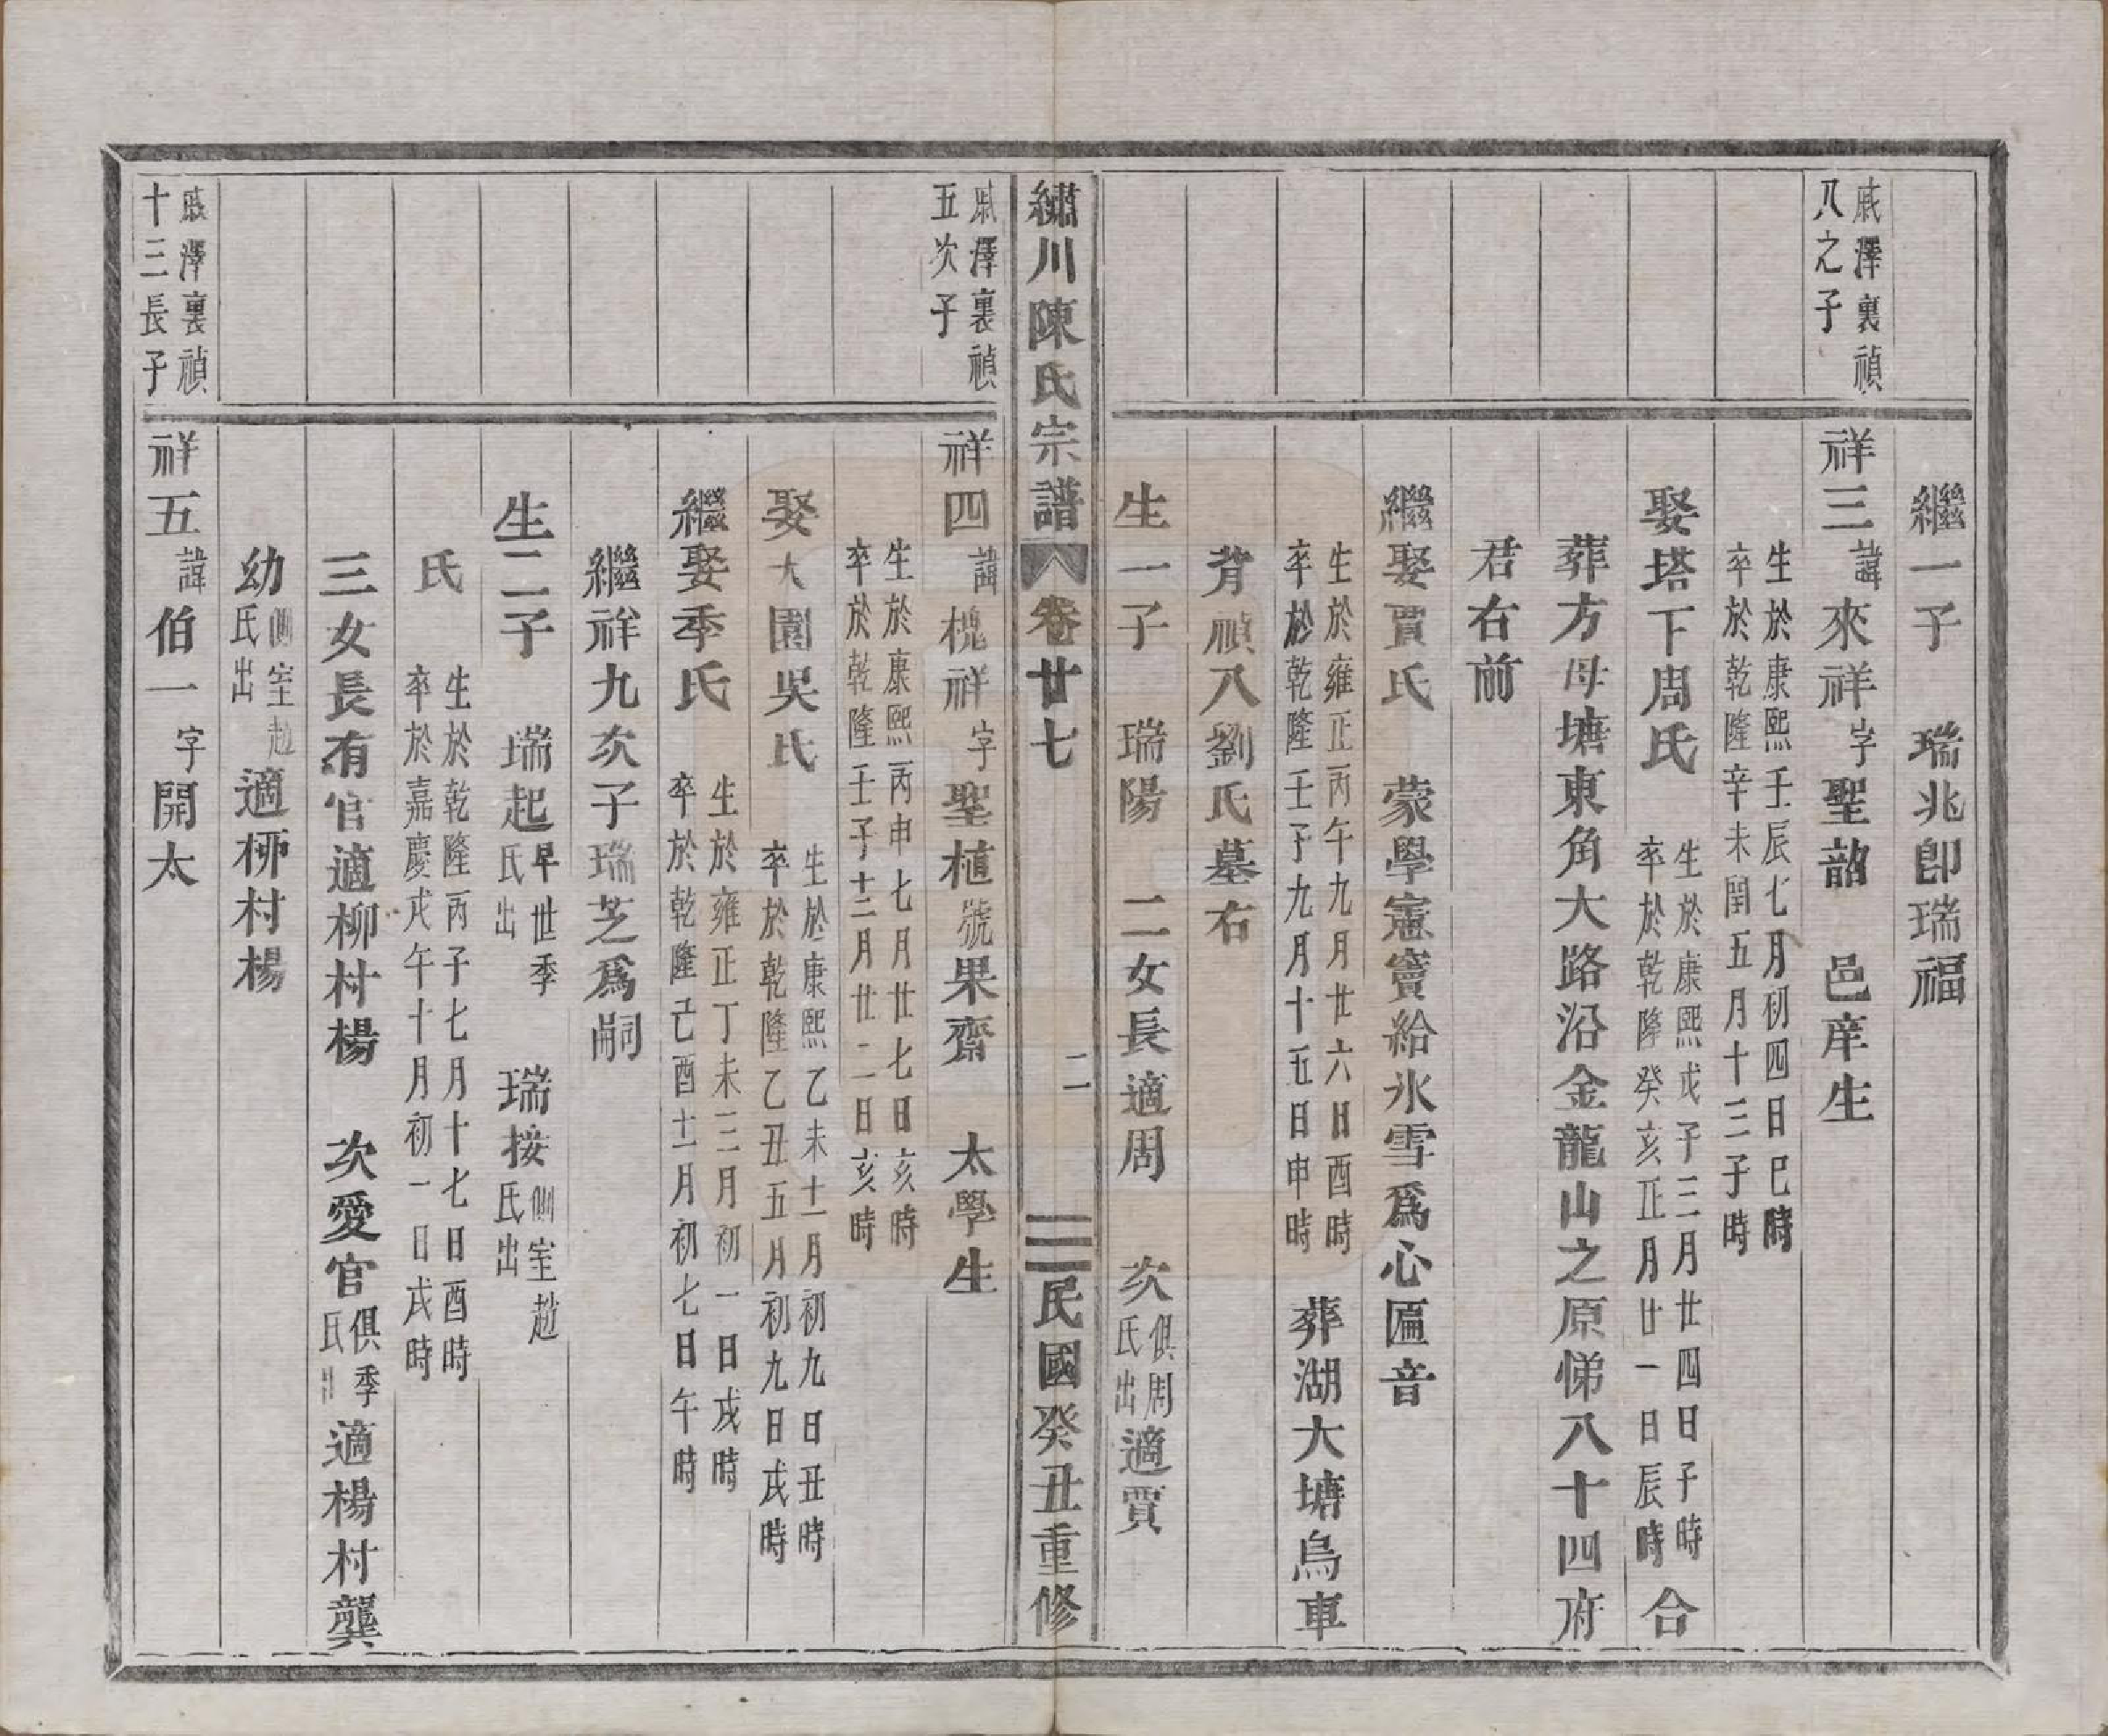 繼一子　瑞兆卽瑞福
戚澤裏禎八之子
祥三諱來祥字聖韶　邑庠生
生於康熙壬辰七月初四日巳時
卒於乾隆辛未閏五月十三子時
娶塔下周氏
生於康熙戊子三月廿四日子時
卒於乾隆癸亥正月廿一日辰時
合
葬方母塘東角大路沿金龍山之原悌八十四府
君右前
繼娶賈氏　蒙學憲竇給氷雪爲心匾音
生於雍正丙午九月廿六日酉時
卒於乾隆壬子九月十五日申時
葬湖大塘烏車
背禎八劉氏墓右
生一子　瑞陽　二女長適周　次俱周氏出適賈
繡川陳氏宗譜　卷廿七　二　民國癸丑重修
戚澤裏禎五次子
祥四諱槐祥字聖植號果齋　太學生
生於康熙丙申七月廿七日亥時
卒於乾隆壬子十二月廿二日亥時
娶大園吳氏
生於康熙乙未十一月初九日丑時
卒於乾隆乙丑五月初九日戌時
繼娶季氏
生於雍正丁未三月初一日戌時
卒於乾隆己酉十一月初七日午時
繼祥九次子瑞芝爲嗣
生二子　瑞起早世季氏出　瑞接側室趙氏出
氏
生於乾隆丙子七月十七日酉時
卒於嘉慶戊午十月初一日戌時
三女長有官適柳村楊　次愛官俱季氏出適楊村龔
幼側室趙氏出適柳村楊
戚澤裏禎十三長子
祥五諱伯一字開太